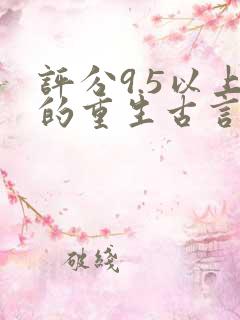 評分9.5以上
的重生古言
破綻